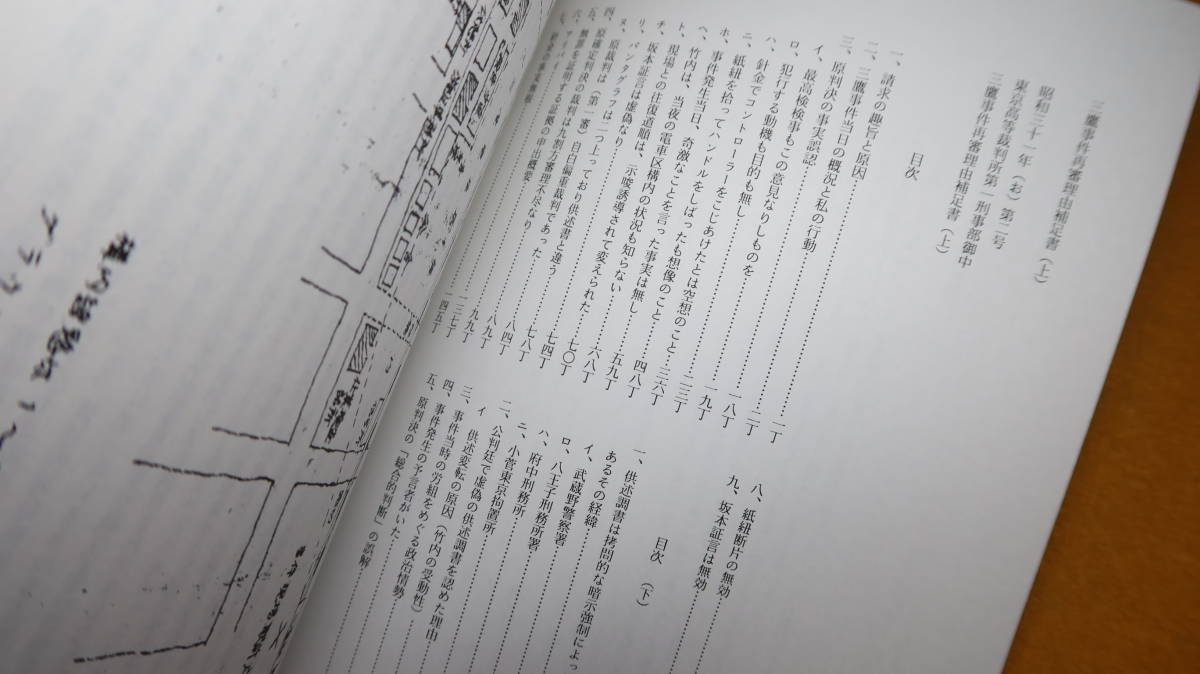 三鷹事件再審理由補足書（上）
昭和三十一年（お）第二号
東京高等裁判所第一刑事部御中
三鷹事件再審理由補足書（上）
目次
一、請求の趣旨と原因……一丁
二、三鷹事件当日の概況と私の行動……二丁
三、原判決の事実誤認……一八丁
イ、最高検検事もこの意見なりしものを……一九丁
ロ、犯行する動機も目的も無し……
ハ、針金でコントローラーをこじあけたとは空想のこと……三三丁
ニ、紙紐を拾ってハンドルをしばったも想像のこと……三六丁
ホ、事件発生当日、奇激なことを言った事実は無し……四八丁
ヘ、竹内は、当夜の電車区構内の状況も知らない……五九丁
ト、現場との往復道順は、示唆誘導されて変えられた……六八丁
チ、坂本証言は虚偽なり……七〇丁
リ、パンタグラフは二つ上っており供述書と違う……七四丁
ヌ、原裁判は（第一審）自白偏重裁判であった……七八丁
四、原確定判決の裁判は九割方審理不尽なり……八四丁
五、無罪を証明する証拠の申出概要……八九丁
六、アリバイ……九九丁
一三七丁
一四五丁
八、紙紐断片の無効……
九、坂本証言は無効……
目次（下）
一、供述調書は拷問的な暗示強制によっ
あるその経緯……
イ、武蔵野警察署……
ロ、八王子刑務所署……
ハ、府中刑務所……
ニ、小菅東京拘置所……
二、公判廷で虚偽の供述調書を認めた理由
イ 供述変転の原因（竹内の受動性）
三、事件当時の労組をめぐる政治情勢……
四、事件発生の予言者がいた……
五、原判決の「総合的判断」の誤解